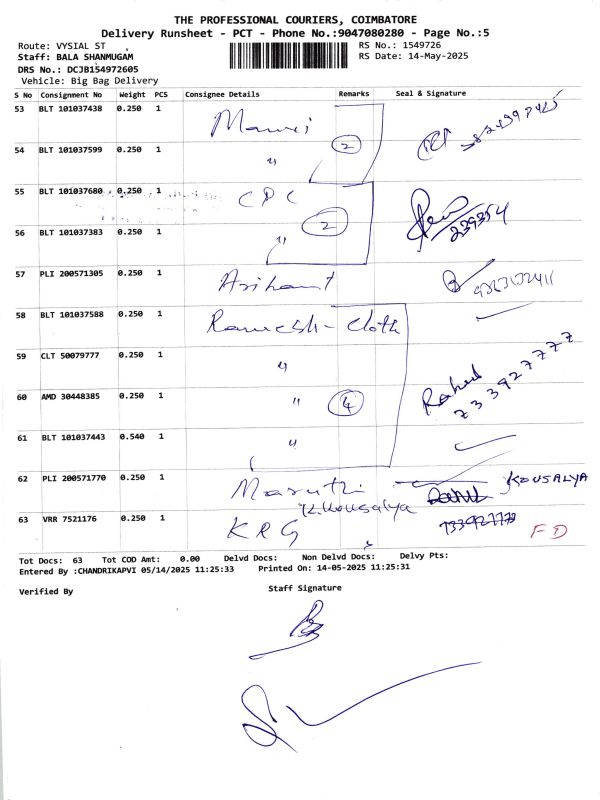 THE PROFESSIONAL COURIERS, COIMBATORE
Delivery Runsheet - PCT - Phone No.:9047080280 - Page No.:5
Route: VYSIAL ST RS No.: 1549726
Staff: BALA SHANMUGAM RS Date: 14-May-2025
DRS No.: DCJB154972605
Vehicle: Big Bag Delivery
S No Consignment No Weight PCS Consignee Details Remarks Seal & Signature
53 BLT 101037438 0.250 1
54 BLT 101037599 0.250 1 〃 2
55 BLT 101037680 0.250 1 CPC
56 BLT 101037383 0.250 1 〃 2 239354
57 PLI 200571305 0.250 1 Arihant
58 BLT 101037588 0.250 1 Ramesh - Cloth
59 CLT 50079777 0.250 1 〃
60 AMD 30448385 0.250 1 〃 4 Rahul 7339277777
61 BLT 101037443 0.540 1 〃
62 PLI 200571770 0.250 1 Maruthi KOUSALYA
K.Kousalya
63 VRR 7521176 0.250 1 KRG FD
Tot Docs: 63 Tot COD Amt: 0.00 Delvd Docs: Non Delvd Docs: Delvy Pts:
Entered By :CHANDRIKAPVI 05/14/2025 11:25:33 Printed On: 14-05-2025 11:25:31
Verified By Staff Signature